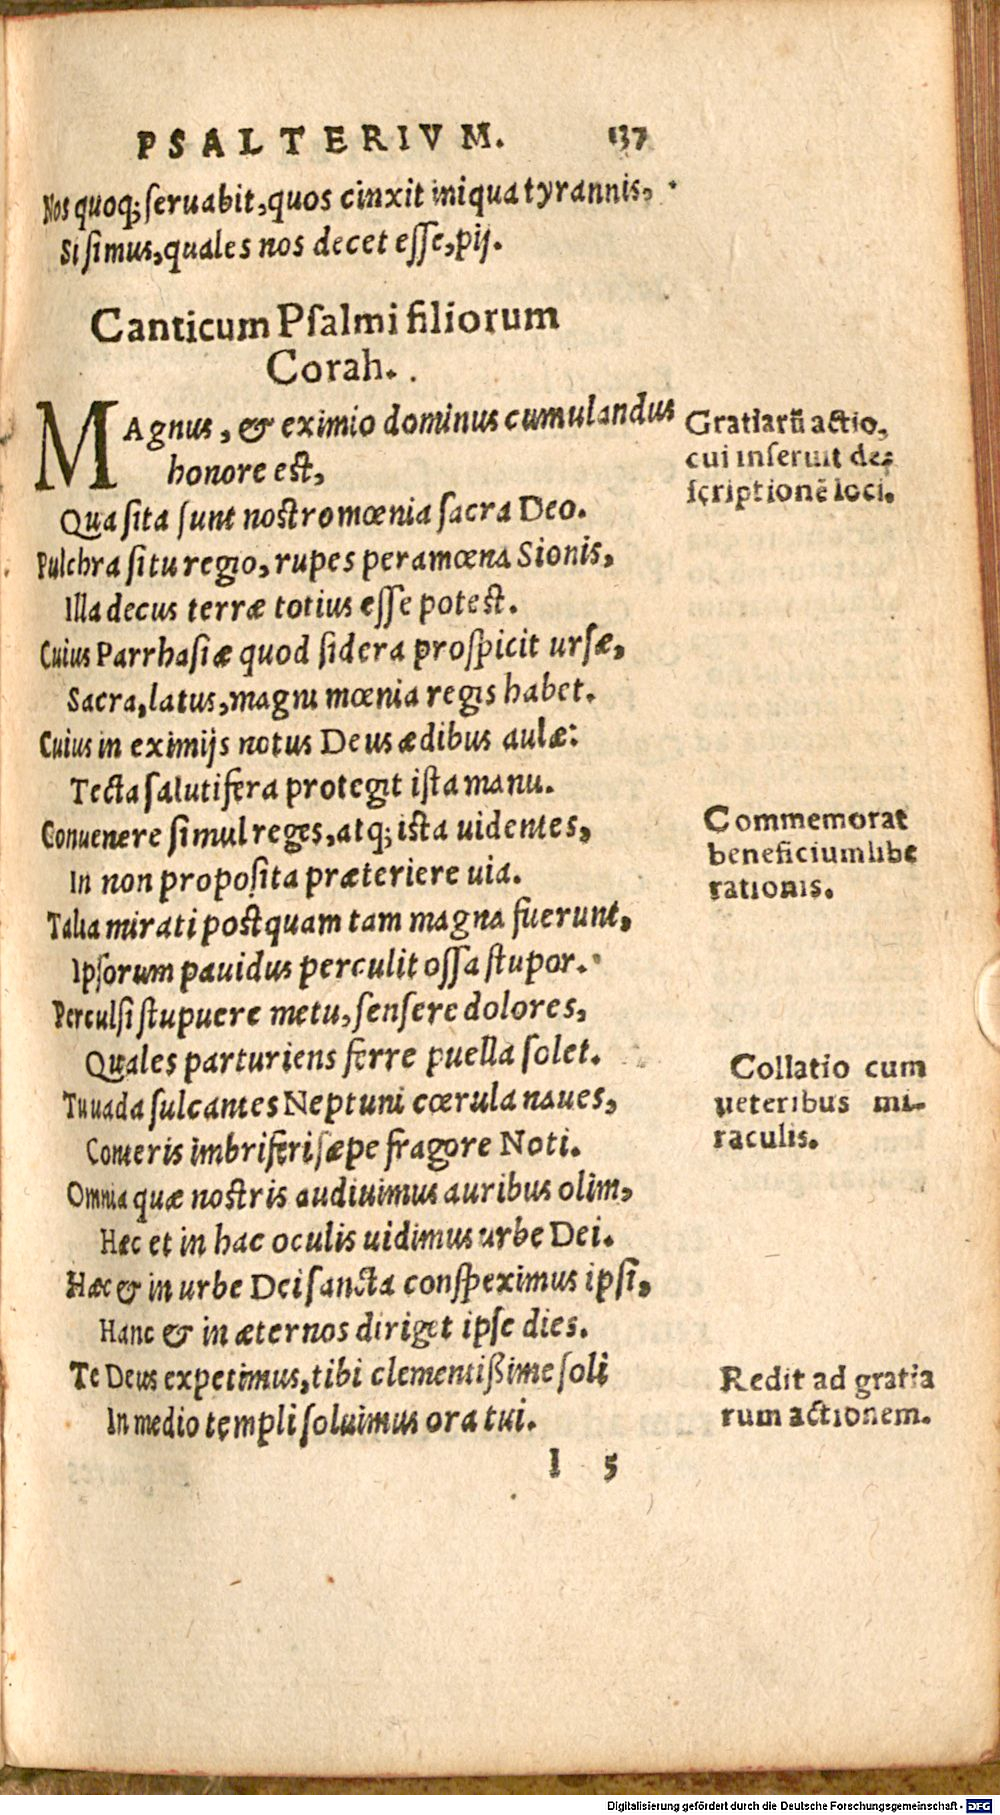 PSALTERIVM. 137
Nos quoq; ſeruabit, quos cinxit iniqua tyrannis,
Si ſimus, quales nos decet eſſe, pij.
Canticum Pſalmi filiorum
Corah.
MAgnus, & eximio dominus cumulandus
honore est,
Qua ſita ſunt nostro mœnia ſacra Deo.
Pulchra ſitu regio, rupes peramœna Sionis,
Illa decus terræ totius eſſe potest.
Cuius Parrhaſiæ quod ſidera proſpicit urſæ,
Sacra, latus, magni mœnia regis habet.
Cuius in eximijs notus Deus ædibus aulæ:
Tecta ſalutifera protegit iſta manu.
Conuenere ſimul reges, atq; ista uidentes,
In non propoſita præteriere uia.
Talia mirati postquam tam magna fuerunt,
Ipſorum pauidus perculit oſſa ſtupor.
Perculſi ſtupuere metu, ſenſere dolores,
Quales parturiens ferre puella ſolet.
Tu uada ſulcantes Neptuni cœrula naues,
Conteris imbriferi ſæpe fragore Noti.
Omnia quæ nostris audiuimus auribus olim,
Hæc et in hac oculis uidimus urbe Dei.
Hæc & in urbe Dei ſancta conſpeximus ipſi,
Hanc & in æternos diriget ipſe dies.
Te Deus expetimus, tibi clementißime ſoli
In medio templi ſoluimus ora tui.
I 5
Gratiarũ actio,
cui inſeruit de-
ſcriptionẽ loci.
Commemorat
beneficium libe
rationis.
Collatio cum
ueteribus mi-
raculis.
Redit ad gratia
rum actionem.
Digitalisierung gefördert durch die Deutsche Forschungsgemeinschaft - DFG